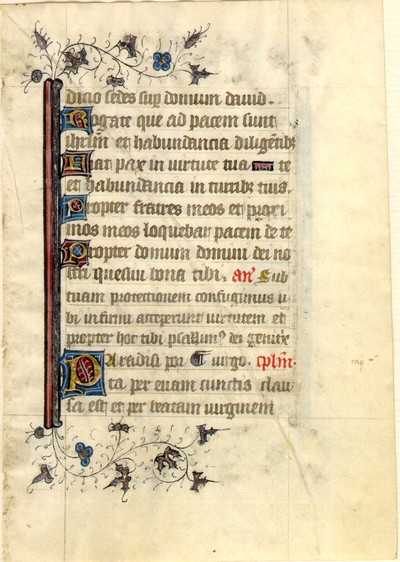 dicio sedes sup domum david.
Rogate que ad pacem sunt
ihrlm et habundancia diligētibz
Fiat pax in virtute tua et
et habundancia in turribz tuis.
Propter fratres meos et proxi
mos meos loquebar pacem de te
Propter domum domini dei no
stri quesivi bona tibi. an̄. Sub
tuam protectionem confugimus u
bi infirmi acceperunt virtutem et
propter hoc tibi psallim⁹ dei genitx̄
Paradisi por virgo. cplm̄.
ta per evam cunctis clau
sa est et per beatam virginem